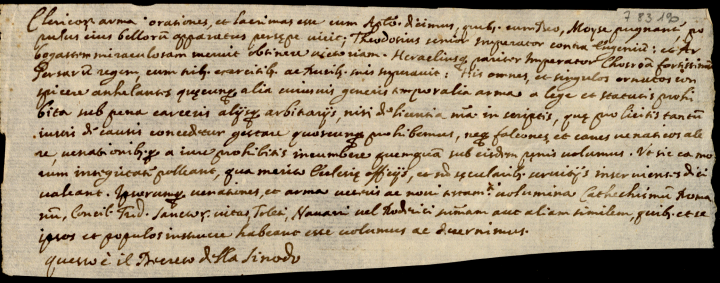 7 83 190
Clericor. arma orationes, et lacrimas esse cum Apto. dicimus, quib. cum Deo, Moyse pugnant, po
pulus eius bellorū apparatus persępe vicit; Theodosius senior Imperator contra Eugenium: et Ar
bogastem miraculosam meruit obtinere victoriam. Heraclius pariter Imperator Chosroū fortissimum
Persarū regem, cum trib. exercitib. ac Ducib. suis superavit: His omnes, et singulos ornatos con
spicere anhelantes quęcunq. alia cuiusuis generis temporalia arma a lege et statutis prohi
bita sub pena carceris alijsq. arbitrarijs, nisi de licentia nr̄a in scriptis, quę pro licitis tantū
iustis de causis conceditur gestare quoscunq. prohibemus, neq. falcones, et canes venaticos ale
re, venationibusq. a iure prohibitis incumbere quenquam sub eisdem penis volumus. Ut sic ca mo
rum integritate polleant, qua merito Ecclesię officijs, et nō secularib. servitijs inservientes dici
valeant. Ipsorumq. venationes, et arma veteris ac novi testam.ti volumina Cathechismū Roma
nū, Concil. Trid. Sanctor. vitas, Toleti, Navarri vel Roderici summam aut aliam similem, quib. et se
ipsos et populos instruere habeant esse volumus ac decernimus.
questo è il Decreto della Sinodo